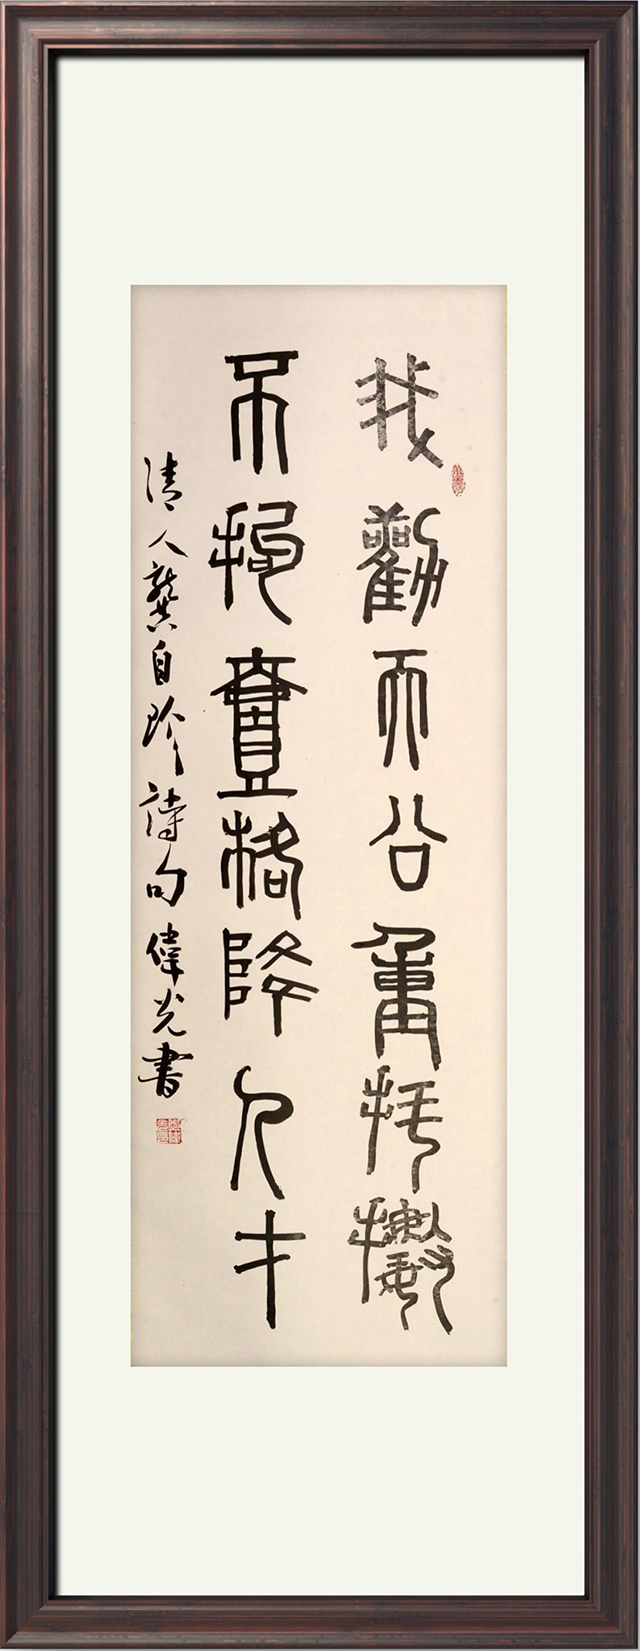 我勸天公重抖擻
不拘壹格降人才
清人龔自珍詩句偉光書